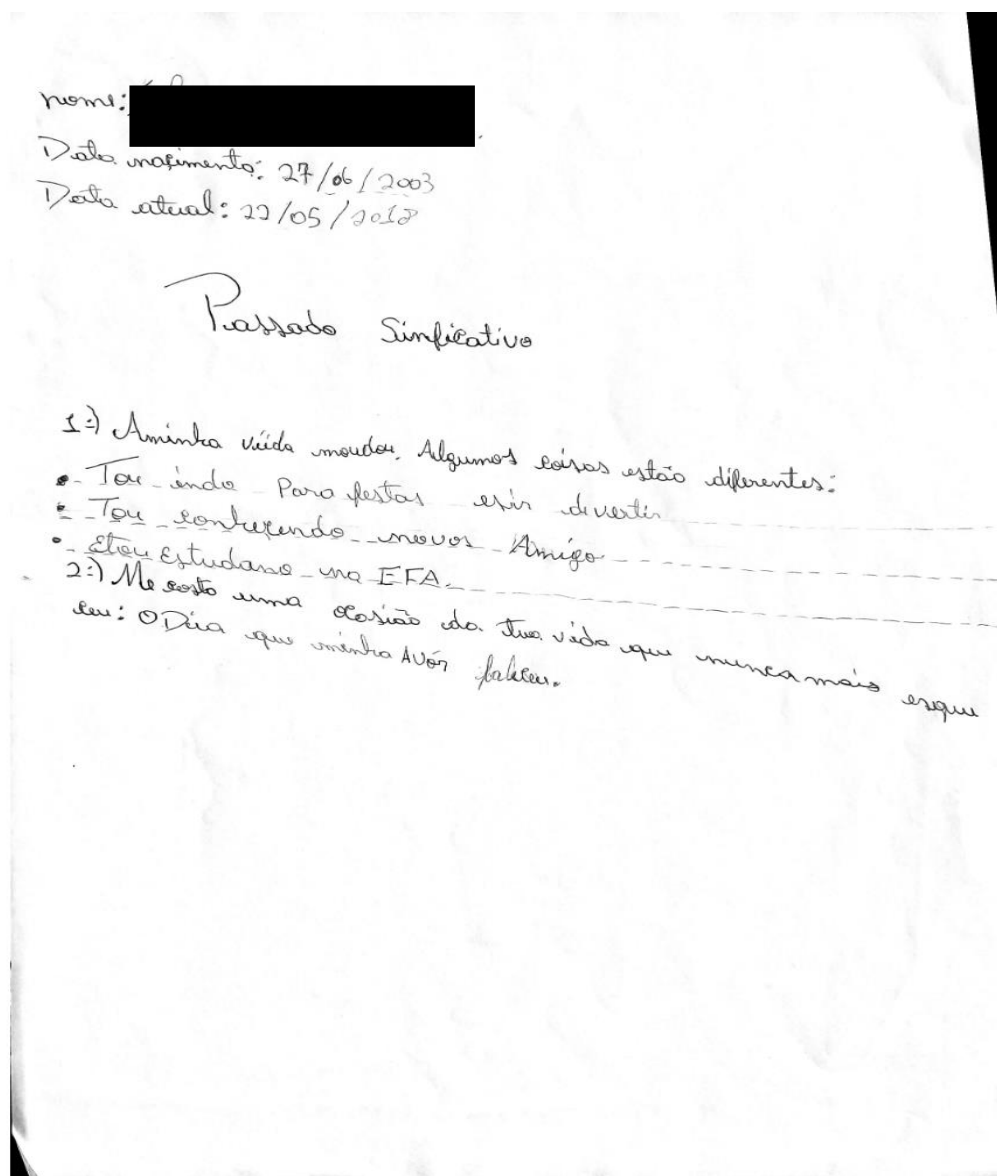 nome:
Data nascimento: 27/06/2003
Data atual: 22/05/2018
Passado Sinficativo
1-) Aminha viida moudou. Algumos coisas estão diferentes:
- Tou indo Para festas esir divertir
- Tou conhecendo novos Amigo
- Etou Estudano na EFA.
2-) Me costo uma ocasião da tua vida que nunca mais esque
ceu: O Dia que minha Avór faleceu.